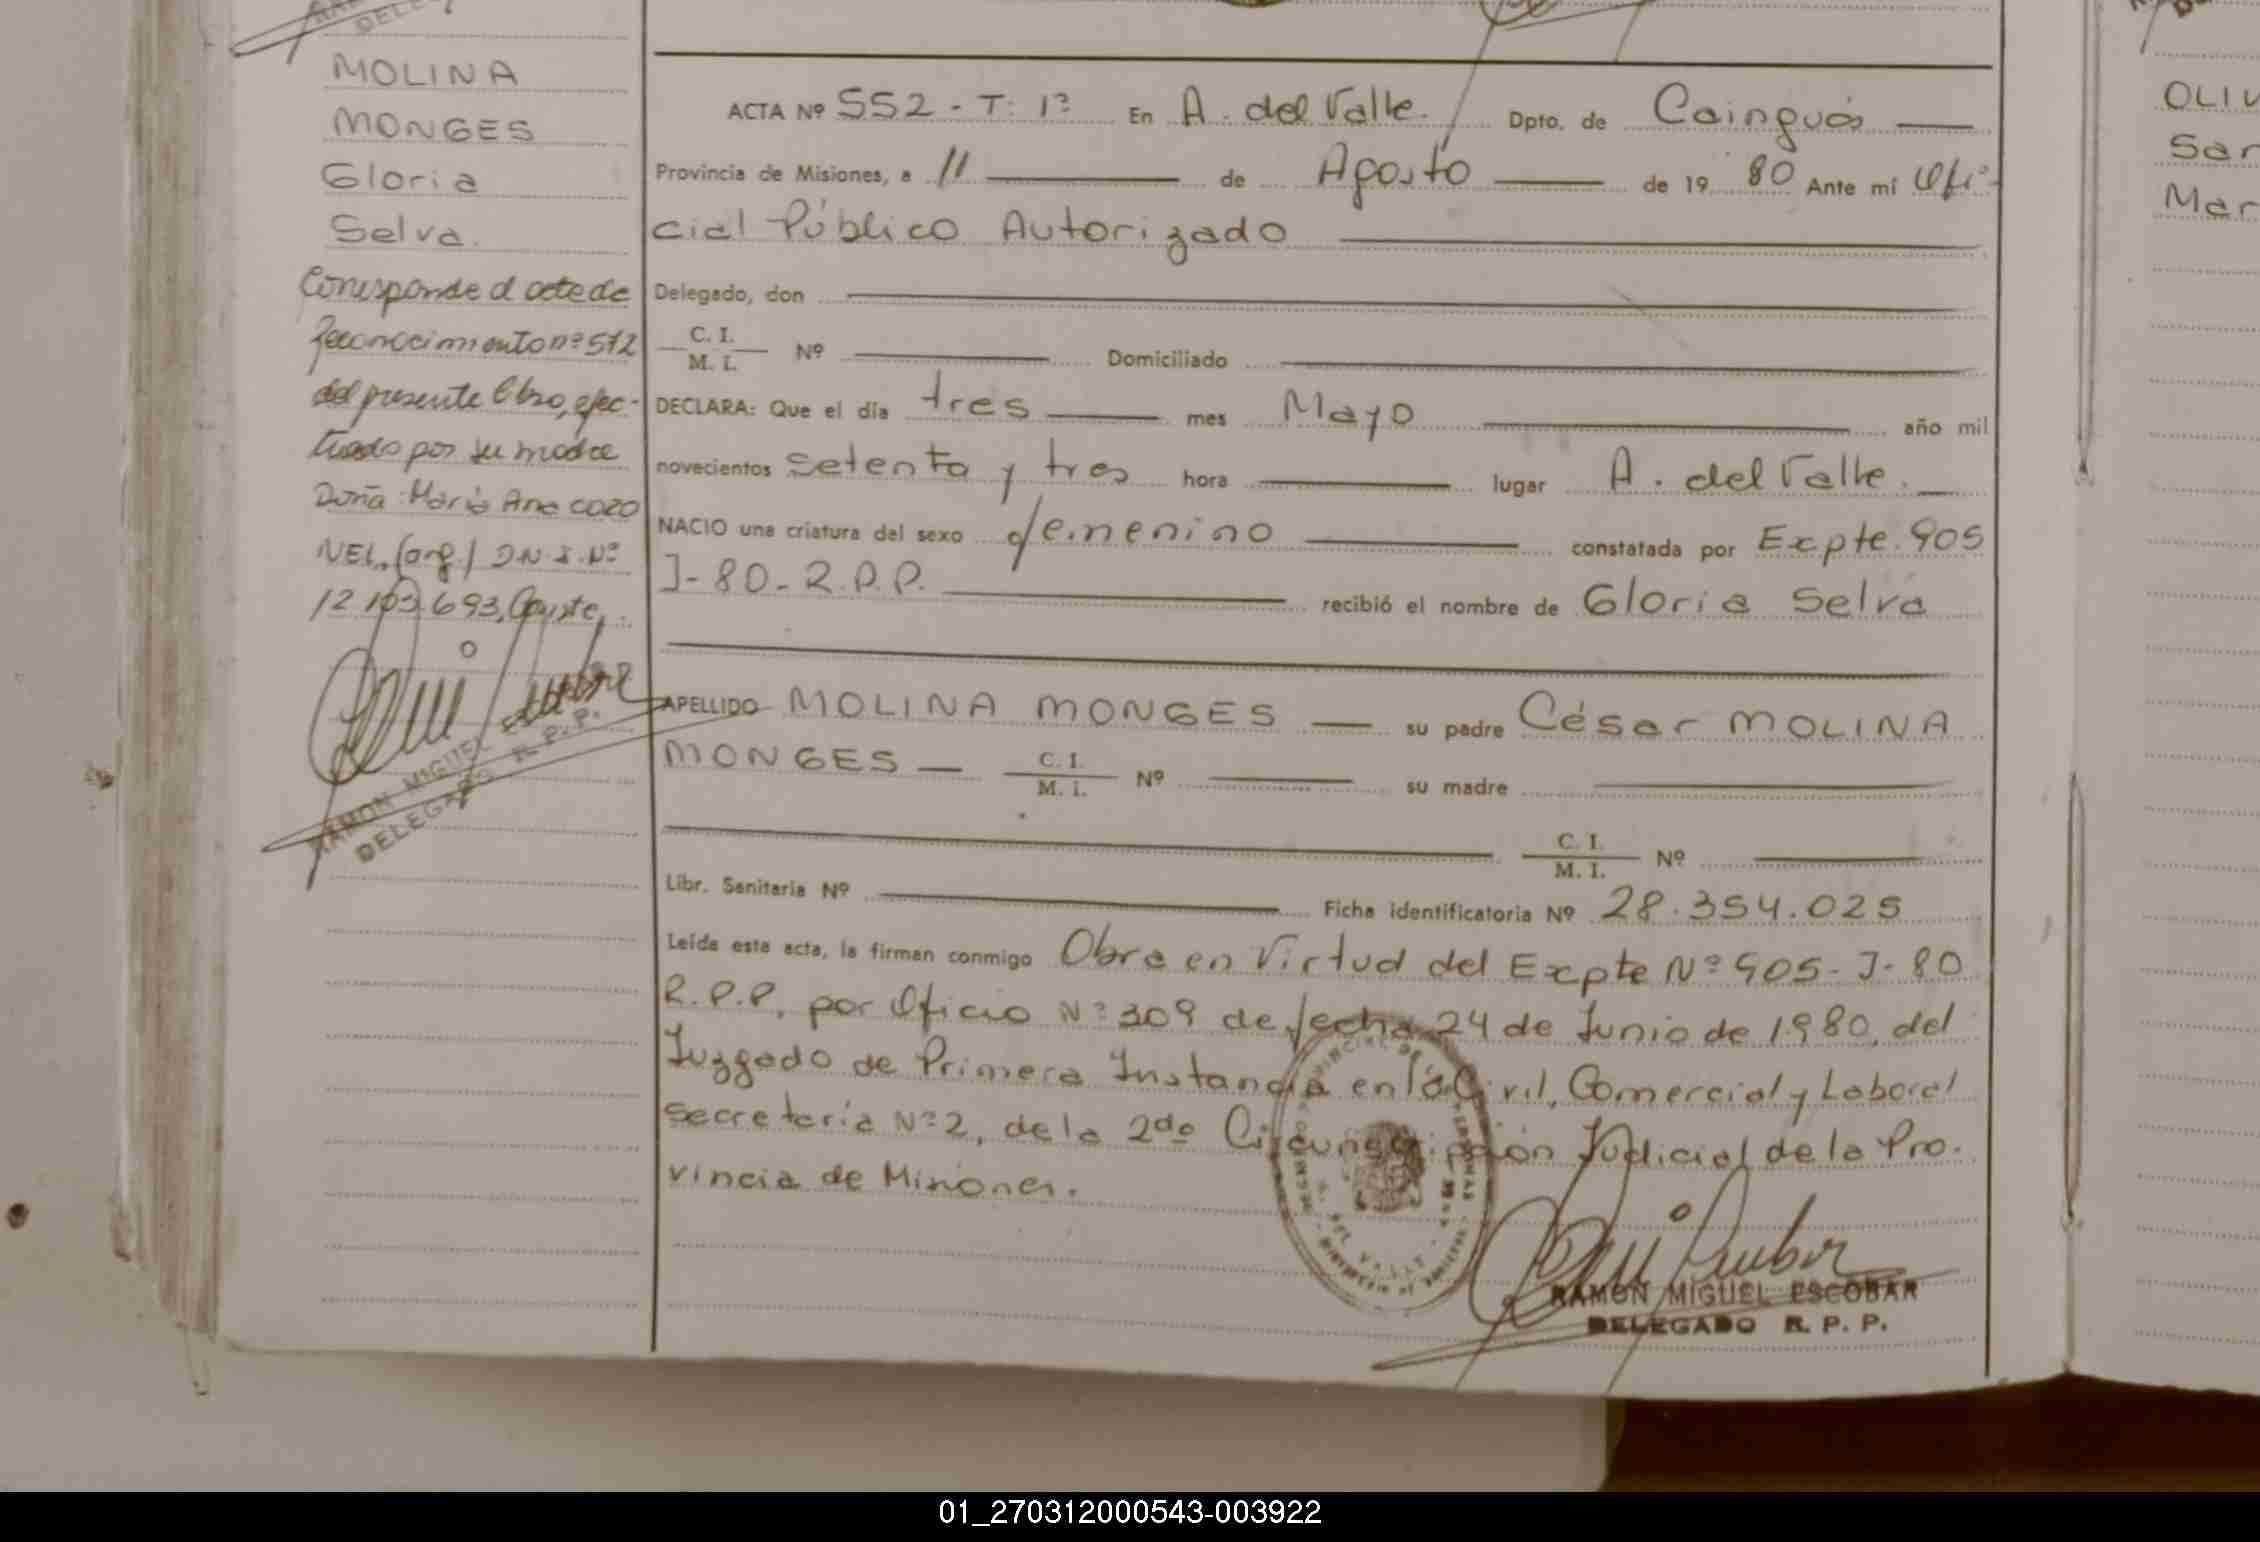 MOLINA
MONGES
Gloria
Selva.
Corresponde al acta de
Reconocimiento nº 512
del presente libro, efec-
tuado por su madre
Doña María Ana CORO
NEL, (arg.) D.N.I. Nº
12.103.693, Conste.
RAMON MIGUEL
DELEGADO R. P. P.
ACTA Nº 552 - T: 1º En A. del Valle. Dpto. de Cainguás
Provincia de Misiones, a 11 de Agosto de 19 80 Ante mí Ofi-
cial Público Autorizado
Delegado, don
C. I.
M. I. Nº Domiciliado
DECLARA: Que el día tres mes Mayo año mil
novecientos setenta y tres hora lugar A. del Valle.
NACIO una criatura del sexo femenino constatada por Expte. 905
J-80-R.P.P. recibió el nombre de Gloria Selva
APELLIDO MOLINA MONGES su padre César MOLINA
MONGES C. I.
M. I. Nº su madre
C. I.
M. I. Nº
Libr. Sanitaria Nº Ficha identificatoria Nº 28.354.025
Leída esta acta, la firman conmigo Obra en Virtud del Expte Nº 905-J-80
R.P.P, por Oficio Nº 309 de fecha 24 de Junio de 1980, del
Juzgado de Primera Instancia en lo Civil, Comercial y Laboral
Secretaría Nº 2, de la 2da Circunscripción Judicial de la Pro-
vincia de Misiones.
RAMON MIGUEL ESCOBAR
DELEGADO R. P. P.
OLIV
Mar
01_270312000543-003922